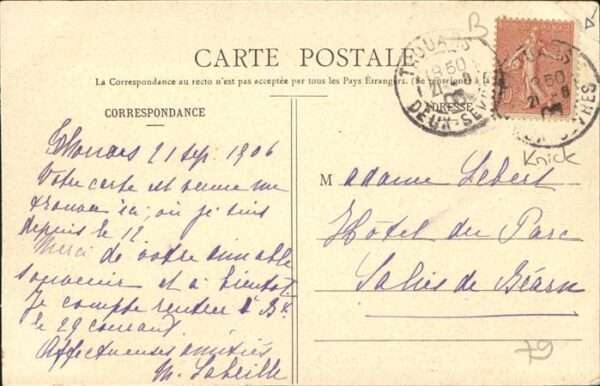 CARTE POSTALE
La Correspondance au recto n'est pas acceptée par tous les Pays Étrangers. (Se renseigner)
CORRESPONDANCE
ADRESSE
THOUARS
DEUX-SÈVRES
Thouars 21 Sep. 1906
Votre carte est venue me
trouver ici, où je suis
depuis le 12
Merci de votre aimable
souvenir et à bientôt
Je compte rentrer à Bx.
le 29 courant.
Affectueuses amitiés
M. Labeille
Madame Lebert
Hôtel du Parc
Salies de Béarn
B
Knick
79